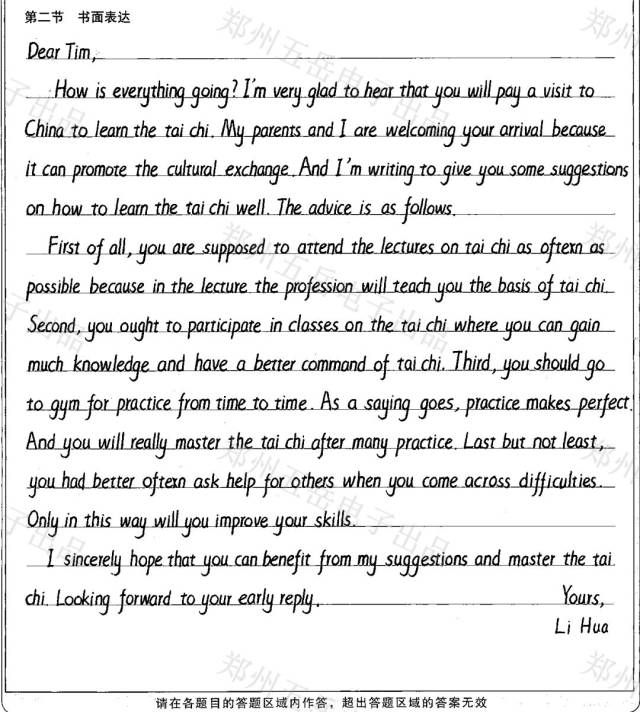 第二节 书面表达
Dear Tim,
How is everything going? I'm very glad to hear that you will pay a visit to
China to learn the tai chi. My parents and I are welcoming your arrival because
it can promote the cultural exchange. And I'm writing to give you some suggestions
on how to learn the tai chi well. The advice is as follows.
First of all, you are supposed to attend the lectures on tai chi as oftern as
possible because in the lecture the profession will teach you the basis of tai chi.
Second, you ought to participate in classes on the tai chi where you can gain
much knowledge and have a better command of tai chi. Third, you should go
to gym for practice from time to time. As a saying goes, practice makes perfect.
And you will really master the tai chi after many practice. Last but not least,
you had better oftern ask help for others when you come across difficulties.
Only in this way will you improve your skills.
I sincerely hope that you can benefit from my suggestions and master the tai
chi. Looking forward to your early reply.
Yours,
Li Hua
请在各题目的答题区域内作答，超出答题区域的答案无效
郑州五岳电子出品